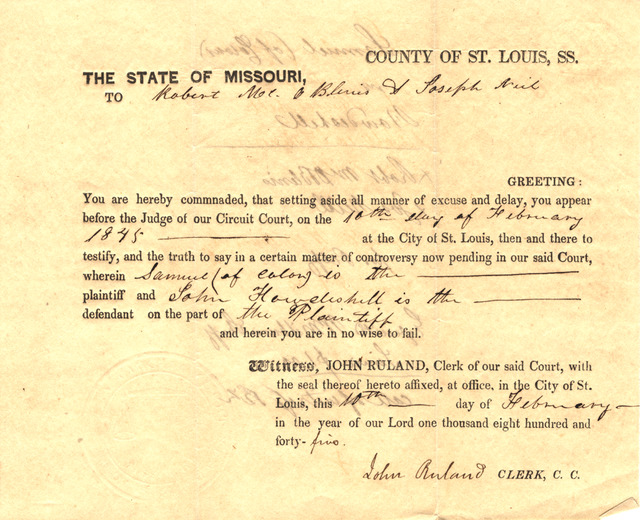 COUNTY OF ST. LOUIS, SS.
THE STATE OF MISSOURI,
TO Robert Mc. O Blenis & Joseph Neil
GREETING:
You are hereby commnaded, that setting aside all manner of excuse and delay, you appear
before the Judge of our Circuit Court, on the 10th day of February
1845 at the City of St. Louis, then and there to
testify, and the truth to say in a certain matter of controversy now pending in our said Court,
wherein Samuel (of color) is the
plaintiff and John Howdeshell is the
defendant on the part of the Plaintiff
and herein you are in no wise to fail.
Witness, JOHN RULAND, Clerk of our said Court, with
the seal thereof hereto affixed, at office, in the City of St.
Louis, this 10th day of February
in the year of our Lord one thousand eight hundred and
forty-five.
John Ruland CLERK, C. C.